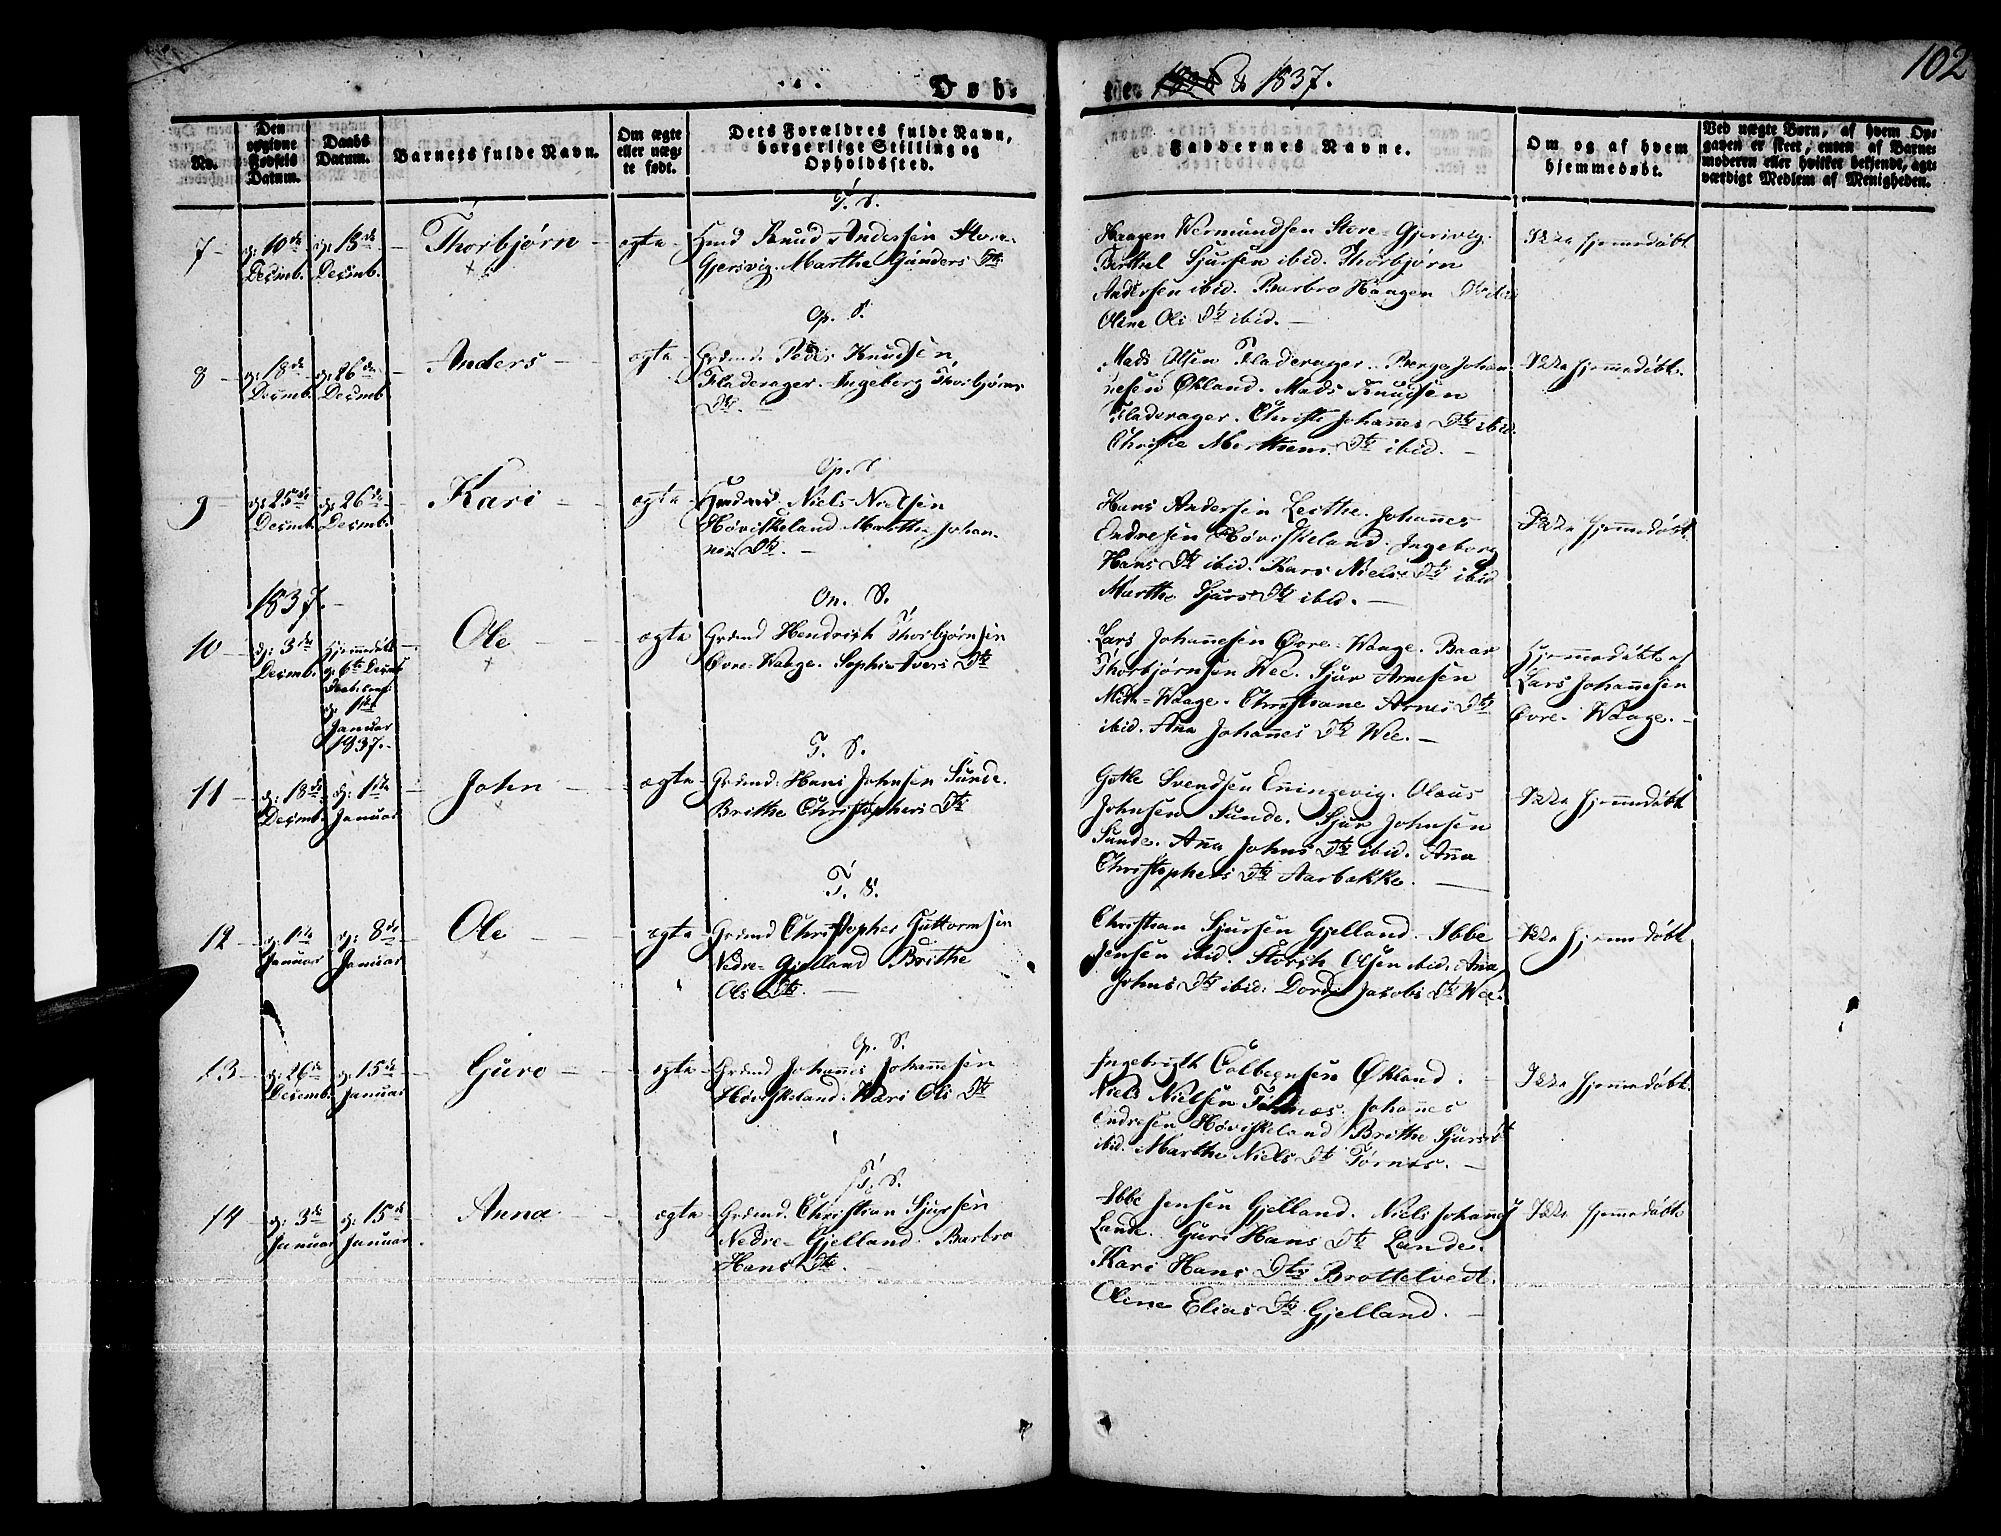 102
Døb-
te 1836 & 1837.
No.
Den
opgivne
Fødsels
Datum.
Daabs
Datum.
Barnets fulde Navn.
Om ægte
eller uæg-
te født.
Dets Forældres fulde Navn,
borgerlige Stilling og
Opholdssted.
Faddernes Navne.
Om og af hvem
hjemmedøbt.
Ved uægte Børn, af hvem Op-
gaven er skeet, enten af Barne-
moderen eller hvilket bekjendt, agt-
værdigt Medlem af Menigheden.
T. S.
7
d: 10de
Decmb.
d: 18de
Decmb.
Thorbjørn
ægte
Huusmd Knud Andersen Store-
Gjersvig. Marthe Gunders Dtr
Haagen Wermundsen Store-Gjersvig.
Berthel Sjursen ibid. Thorbjørn
Andersen ibid. Barbro Haagen Dtr ibid
Oline Ols Dtr ibid.
Ikke hjemmedøbt
Op. S.
8
d: 18de
Decmb.
d: 26de
Decmb
Anders
ægte
Grdmd. Peder Knudsen
Fladerager. Ingeborg Thorbjørns
Dtr.
Mads Olsen Fladerager. Børge Johan-
nesen Økland. Mads Knudsen
Fladerager. Christi Johannes Dtr ibid.
Christie Morthens Dtr ibid.
Ikke hjemmedøbt.
Op. S
9
d: 25de
Decmb.
d: 26de
Decmb.
Kari
ægte
Niels Nielsen
Høviskeland Marthe Johan-
nes Dtr.
Hans Andersen Leithe. Johannes
Endresen Høviskeland. Ingeborg
Hans Dtr ibid. Kari Niels Dtr ibid
Marthe Sjurs Dtr ibid.
Ikke hjemmedøbt.
1837.
On. S.
10
d: 3de
Decmb.
Hjemmedøbt
d: 6te Decmb
Daab. conf:
d: 1ste
Januar
1837.
Ole
ægte
Grdmd Hendrich Thorbjørnsen
Øvre-Waage. Sophie Ivers Dtr
Lars Johannesen Øvre-Waage. Baar
Thorbjørnsen Wee. Sjur Arnesen
Midt-Waage. Christiane Arnes Dtr
ibid. Anna Johannes Dtr Wee.
Hjemmedøbt af
Lars Johannesen
Øvre-Waage.
T. S.
11
d: 18de
Decmb.
d: 1ste
Januar
John
ægte
Grdmd: Hans Johnsen Sunde.
Brithe Christophers Dtr
Gotle Svendsen Enningevig. Olaus
Johnsen Sunde. Sjur Johnsen
Sunde. Anna Johns Dtr ibid. Anna
Christophers Dtr Aarbakke.
Ikke hjemmedøbt
T. S.
12
d: 1ste
Januar
d: 8de
Januar
Ole
ægte
Grdmd Christopher Guttormsen
Nedre-Gjelland Brithe
Ols Dtr.
Christian Sjursen Gjelland. Ibbe
Jensen ibid. Størch Olsen ibid. Anna
Johns Dtr ibid: Dordi Jacobs Dtr Wee.
Ikke hjemmedøbt
Op. S.
13
d: 26de
Decemb.
d: 15de
Januar
Guro
ægte
Grdmd Johannes Johannesen
Høviskeland. Kari Ols Dtr
Ingebrigth Colbegnsen Økland.
Niels Nielsen Tørnæs. Johannes
Endresen Høviskeland Brithe Sjurs Dt
ibid. Marthe Niels Dtr Tørnæs.
Ikke hjemmedøbt.
T. S.
14
d: 3de
Januar
d: 15de
Januar
Anna
ægte
Grdmd. Christian Sjursen
Nedre-Gjelland. Barbro
Hans Dtr.
Ibbe Jensen Gjelland. Niels Johannes
Lande. Guri Hans Dtr Lande.
Kari Hans Dtr Brottetvedt.
Oline Elias Dtr Gjelland.
Ikke hjemmedøbt